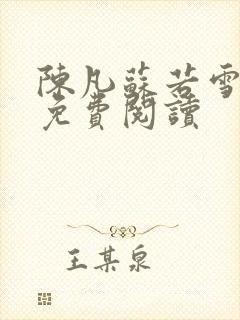 陳凡蘇若雪
免費閱讀
王某泉